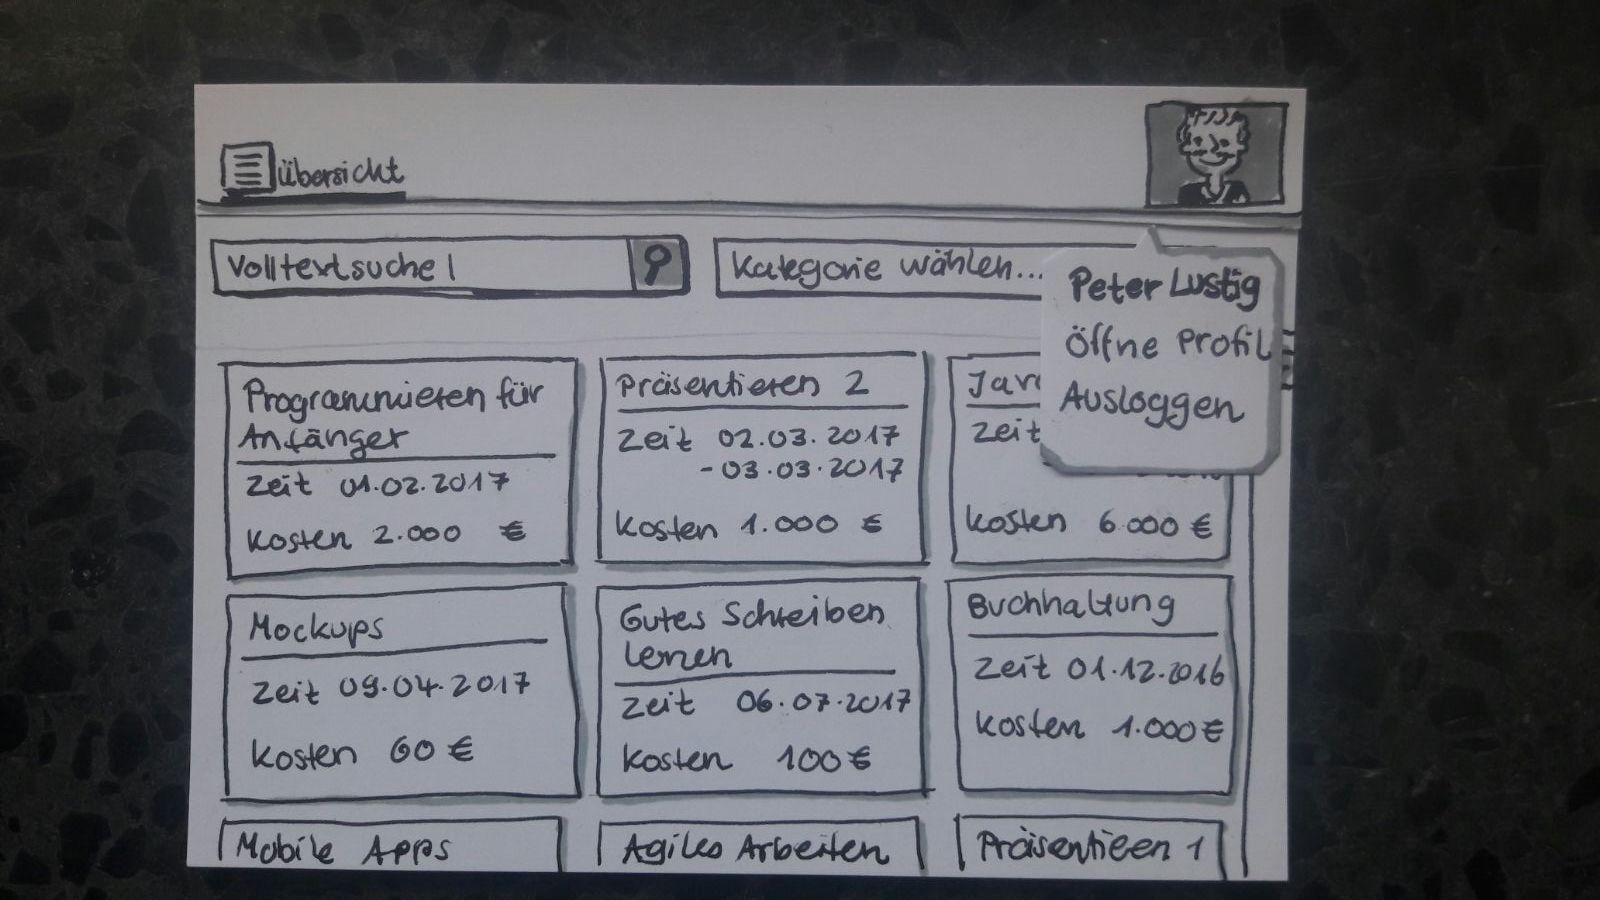 Übersicht
Volltextsuche
Kategorie wählen...
Peter Lustig
Öffne Profil
Ausloggen
Programmieren für
Anfänger
Zeit 01.02.2017
Kosten 2.000 €
Präsentieren 2
Zeit 02.03.2017
-03.03.2017
Kosten 1.000 €
Zeit
Kosten 6.000 €
Mockups
Zeit 09.04.2017
Kosten 60 €
Gutes Schreiben
lernen
Zeit 06.07.2017
Kosten 100 €
Buchhaltung
Zeit 01.12.2016
Kosten 1.000 €
Mobile Apps
Agiles Arbeiten
Präsentieren 1